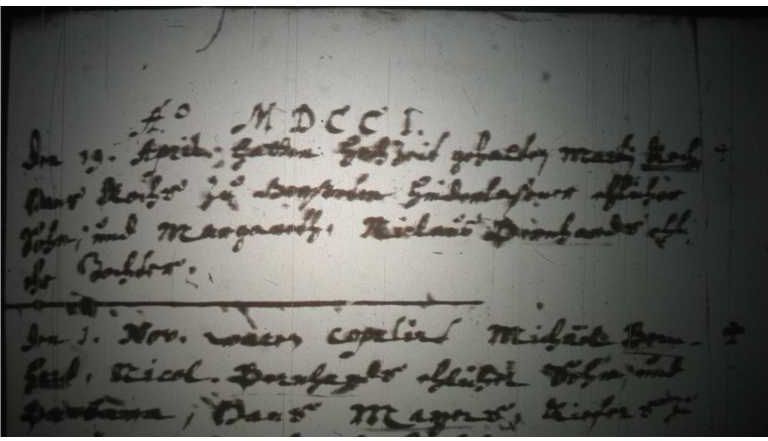 Aō MDCCI.
Den 19. April, haben Hochzeit gehalten Martin Koch
Hans Kochs zu hinderlaßener ehlicher
Sohn, und Margareth, Niclaus Bernhards ehl
che Tochter.
Den 1. Nov. waren copulirt Michael Bern-
hard, Nicol. Bernhards ehlicher Sohn und
Barbara, Hans Mayers, Kiefers